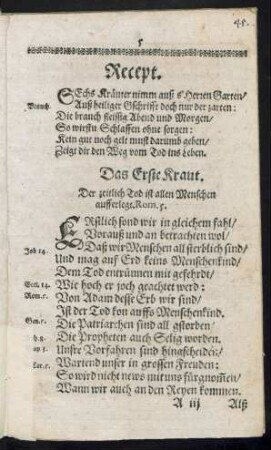 45.
5
Recept.
SEchs Kräuter nimm auß s' Herren Garten/
Auß heiliger Gschrifft doch nur der zarten:
Brauch. Die brauch fleissig Abend und Morgen/
So wirstu Schlaffen ohne sorgen:
Kein gut noch gelt must darumb geben/
Zeigt dir den Weg vom Tod ins Leben.
Das Erste Kraut.
Der zeitlich Tod ist allen Menschen
aufferlegt, Rom. 5.
ERstlich sond wir in gleichem fahl/
Vorauß und an betrachten wol/
Job 14. Daß wir Menschen all sterblich sind/
Und mag auf Erd keins Menschenkind/
Dem Tod entrünnen mit gefehrdt/
Wie hoch er joch geachtet werd:
Rom. 5. Von Adam desse Erb wir sind/
Ist der Tod kon auffs Menschenkind.
Gen. 5. Die Patriarchen sind all gstorben/
Die Propheten auch Selig worden.
Unsre Vorfahren sind hingscheiden/
Wartend unser in grossen Freuden:
So wird nicht news mit uns fürgnom̃en/
Wann wir auch an den Reyen kommen.
A iij Alß